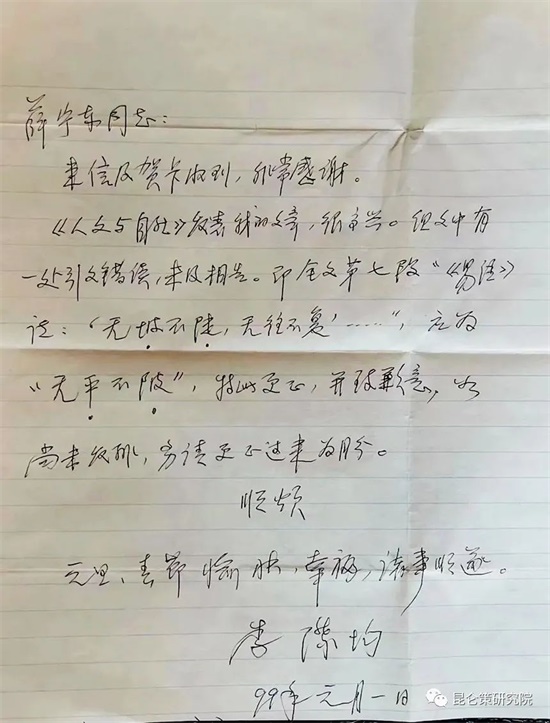 薛宁东同志：
来信及贺卡收到，非常感谢。
《人文与自》发表我的文章，很高兴。但文中有
一处引文错误，未及相告。即全文第七段“《易经》
说：‘无坡不陡，无往不复’……”，应为
“无平不陂”，特此更正，并致歉意，如
尚未发排，务请更正过来为盼。
顺颂
元旦、春节愉快，幸福，诸事顺遂。
李际均
99年元月一日
昆仑策研究院